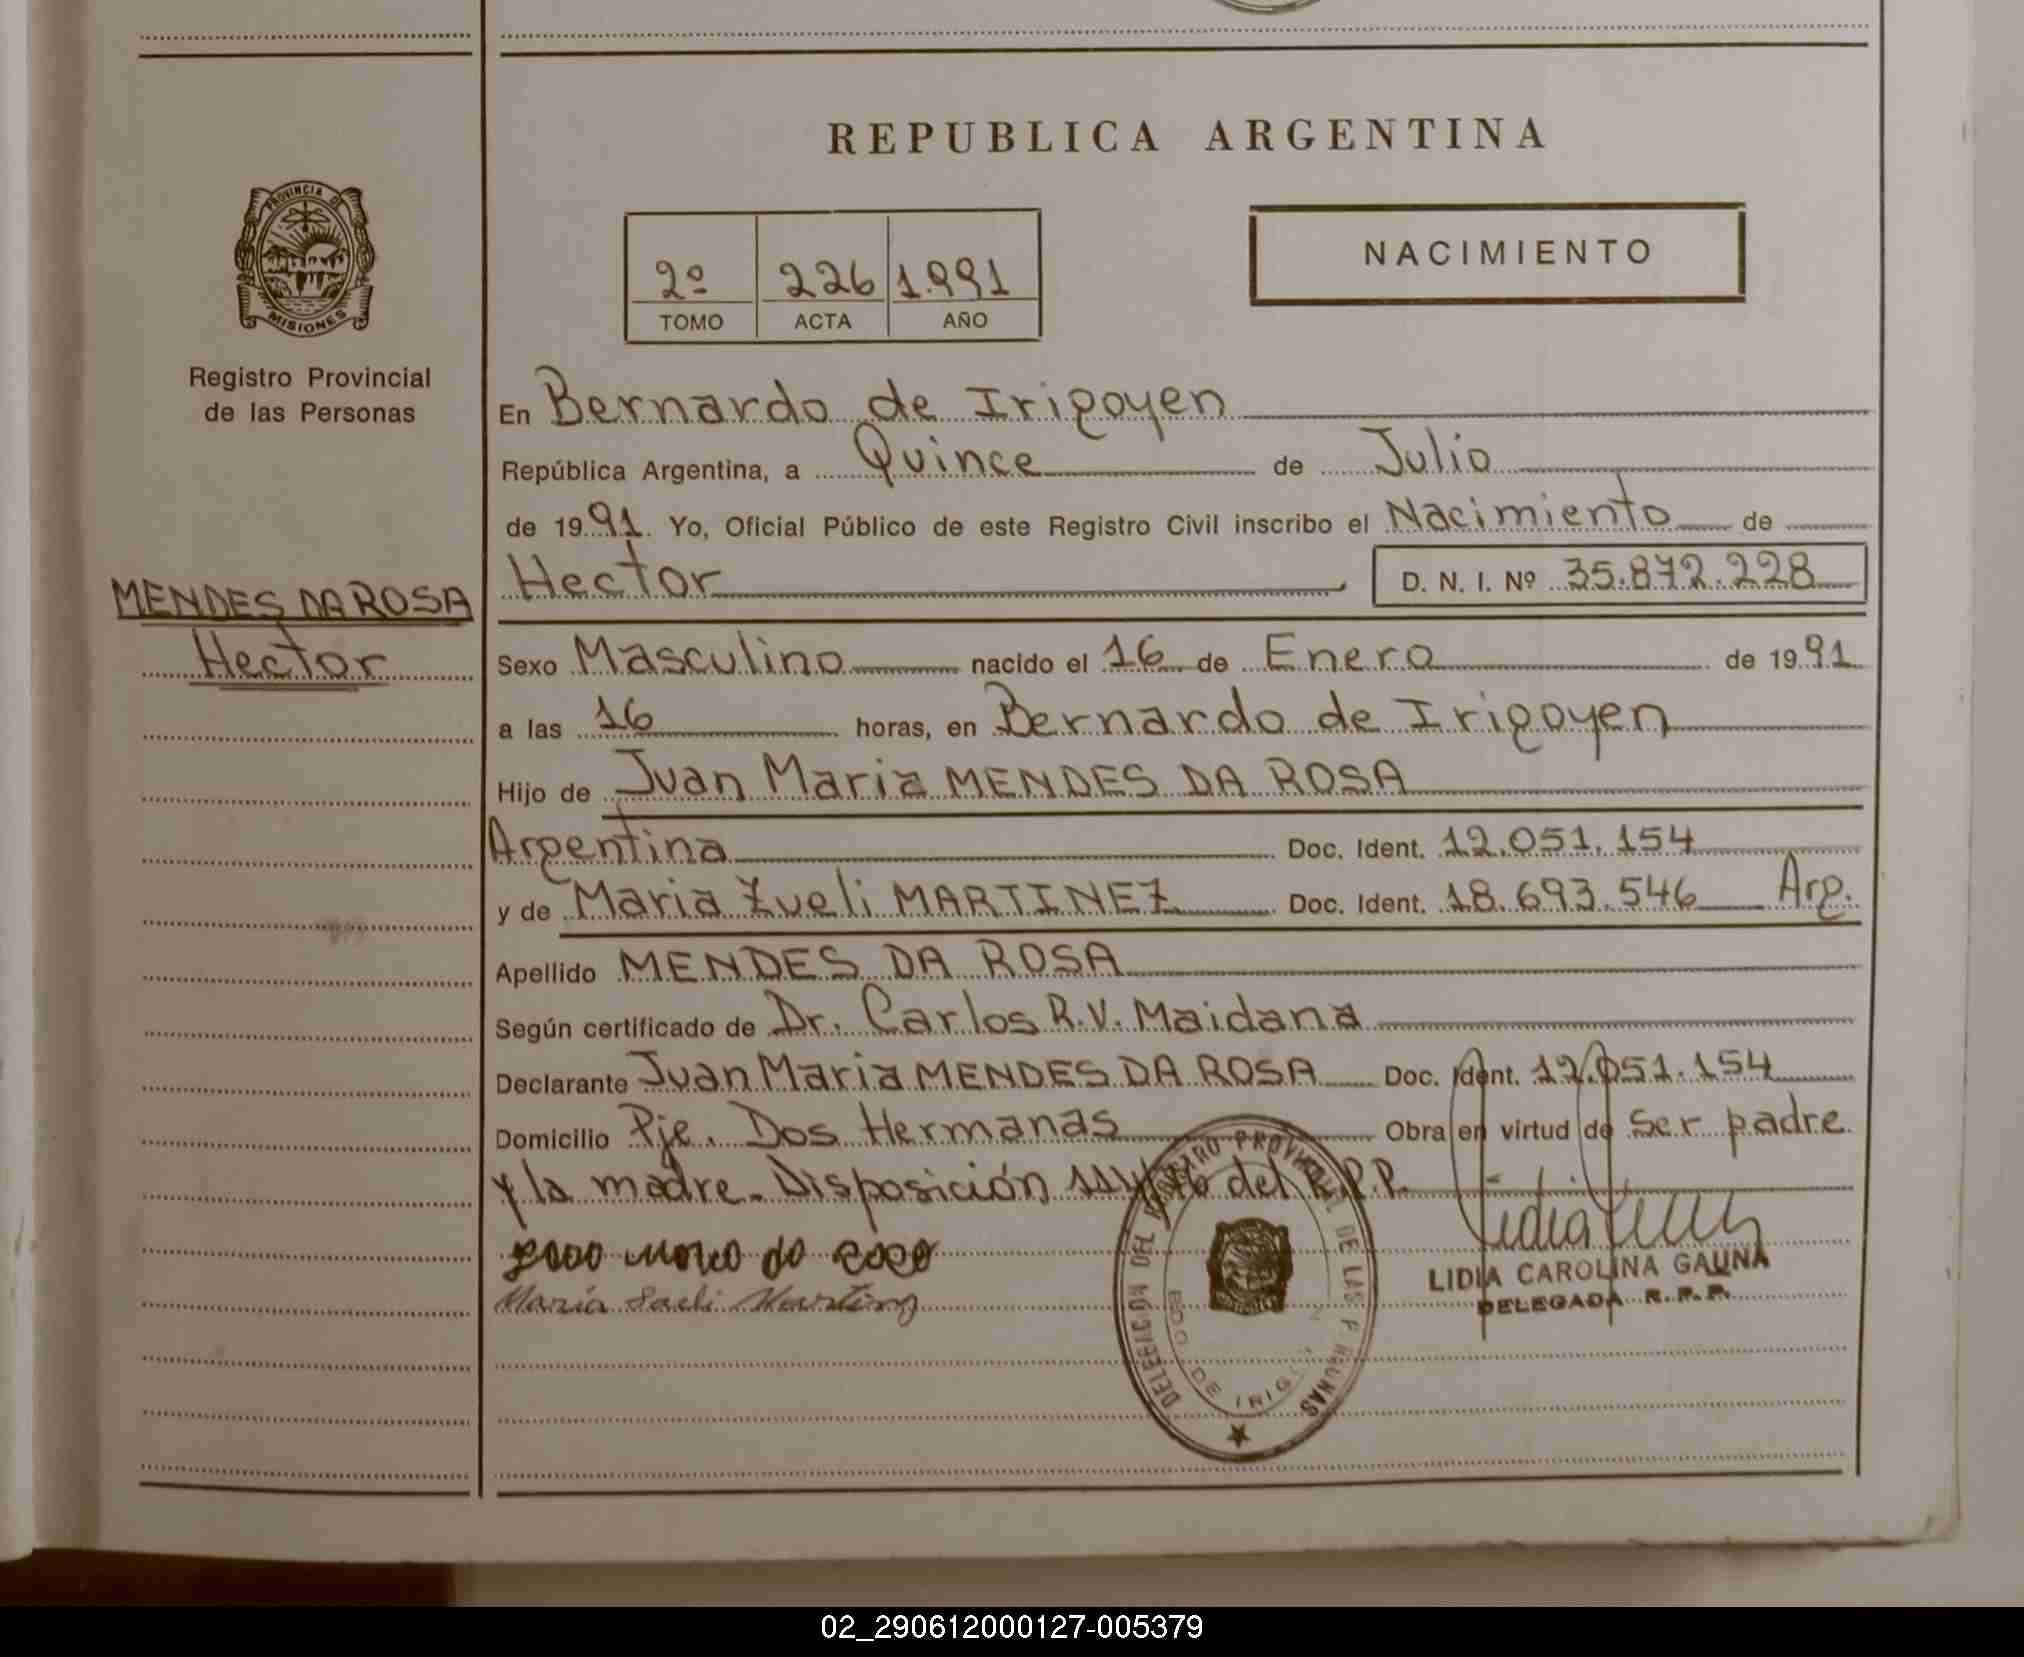 REPUBLICA ARGENTINA
PROVINCIA DE
MISIONES
Registro Provincial
de las Personas
2º 226 1.991
TOMO ACTA AÑO
NACIMIENTO
En Bernardo de Irigoyen
República Argentina, a Quince de Julio
de 1991. Yo, Oficial Público de este Registro Civil inscribo el Nacimiento de
Hector D. N. I. Nº 35.872.228
MENDES DA ROSA
Hector
Sexo Masculino nacido el 16 de Enero de 1991
a las 16 horas, en Bernardo de Irigoyen
Hijo de Juan Maria MENDES DA ROSA
Argentina Doc. Ident. 12.051.154
y de Maria Zueli MARTINEZ Doc. Ident. 18.693.546 Arg.
Apellido MENDES DA ROSA
Según certificado de Dr. Carlos R.V. Maidana
Declarante Juan Maria MENDES DA ROSA Doc. Ident. 12.051.154
Domicilio Pje. Dos Hermanas Obra en virtud de ser padre
y la madre. Disposición del R.P.P.
Maria
LIDIA CAROLINA GAUNA
DELEGADA R.P.P.
DELEGACION DEL REGISTRO PROVINCIAL DE LAS PERSONAS
BDO. DE IRIGOYEN
02_290612000127-005379